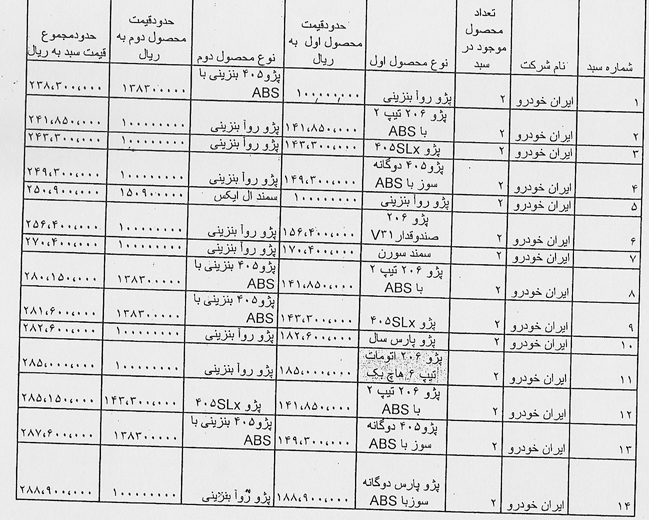 شماره سبد | نام شرکت | تعداد محصول موجود در سبد | نوع محصول اول | حدودقیمت محصول اول به ریال | نوع محصول دوم | حدودقیمت محصول دوم به ریال | حدودمجموع قیمت سبد به ریال
۱ | ایران خودرو | ۲ | پژو روآ بنزینی | ۱۰۰,۰۰۰,۰۰۰ | پژو ۴۰۵ بنزینی با ABS | ۱۳۸۳۰۰۰۰۰ | ۲۳۸,۳۰۰,۰۰۰
۲ | ایران خودرو | ۲ | پژو ۲۰۶ تیپ ۲ با ABS | ۱۴۱,۸۵۰,۰۰۰ | پژو روآ بنزینی | ۱۰۰۰۰۰۰۰۰ | ۲۴۱,۸۵۰,۰۰۰
۳ | ایران خودرو | ۲ | پژو ۴۰۵SLx | ۱۴۳,۳۰۰,۰۰۰ | پژو روآ بنزینی | ۱۰۰۰۰۰۰۰۰ | ۲۴۳,۳۰۰,۰۰۰
۴ | ایران خودرو | ۲ | پژو۴۰۵ دوگانه سوز با ABS | ۱۴۹,۳۰۰,۰۰۰ | پژو روآ بنزینی | ۱۰۰۰۰۰۰۰۰ | ۲۴۹,۳۰۰,۰۰۰
۵ | ایران خودرو | ۲ | پژو روآ بنزینی | ۱۰۰۰۰۰۰۰۰ | سمند ال ایکس | ۱۵۰۹۰۰۰۰۰ | ۲۵۰,۹۰۰,۰۰۰
۶ | ایران خودرو | ۲ | پژو ۲۰۶ صندوقدار V۳۱ | ۱۵۶,۴۰۰,۰۰۰ | پژو روآ بنزینی | ۱۰۰۰۰۰۰۰۰ | ۲۵۶,۴۰۰,۰۰۰
۷ | ایران خودرو | ۲ | سمند سورن | ۱۷۰,۴۰۰,۰۰۰ | پژو روآ بنزینی | ۱۰۰۰۰۰۰۰۰ | ۲۷۰,۴۰۰,۰۰۰
۸ | ایران خودرو | ۲ | پژو ۲۰۶ تیپ ۲ با ABS | ۱۴۱,۸۵۰,۰۰۰ | پژو۴۰۵ بنزینی با ABS | ۱۳۸۳۰۰۰۰۰ | ۲۸۰,۱۵۰,۰۰۰
۹ | ایران خودرو | ۲ | پژو ۴۰۵SLx | ۱۴۳,۳۰۰,۰۰۰ | پژو۴۰۵ بنزینی با ABS | ۱۳۸۳۰۰۰۰۰ | ۲۸۱,۶۰۰,۰۰۰
۱۰ | ایران خودرو | ۲ | پژو پارس سال | ۱۸۲,۶۰۰,۰۰۰ | پژو روآ بنزینی | ۱۰۰۰۰۰۰۰۰ | ۲۸۲,۶۰۰,۰۰۰
۱۱ | ایران خودرو | ۲ | پژو ۲۰۶ اتومات تیپ ۶ هاچ بک | ۱۸۵,۰۰۰,۰۰۰ | پژو روآ بنزینی | ۱۰۰۰۰۰۰۰۰ | ۲۸۵,۰۰۰,۰۰۰
۱۲ | ایران خودرو | ۲ | پژو ۲۰۶ تیپ ۲ با ABS | ۱۴۱,۸۵۰,۰۰۰ | پژو ۴۰۵SLx | ۱۴۳,۳۰۰,۰۰۰ | ۲۸۵,۱۵۰,۰۰۰
۱۳ | ایران خودرو | ۲ | پژو۴۰۵ دوگانه سوز با ABS | ۱۴۹,۳۰۰,۰۰۰ | پژو۴۰۵ بنزینی با ABS | ۱۳۸۳۰۰۰۰۰ | ۲۸۷,۶۰۰,۰۰۰
۱۴ | ایران خودرو | ۲ | پژو پارس دوگانه سوزبا ABS | ۱۸۸,۹۰۰,۰۰۰ | پژو روآ بنزینی | ۱۰۰۰۰۰۰۰۰ | ۲۸۸,۹۰۰,۰۰۰